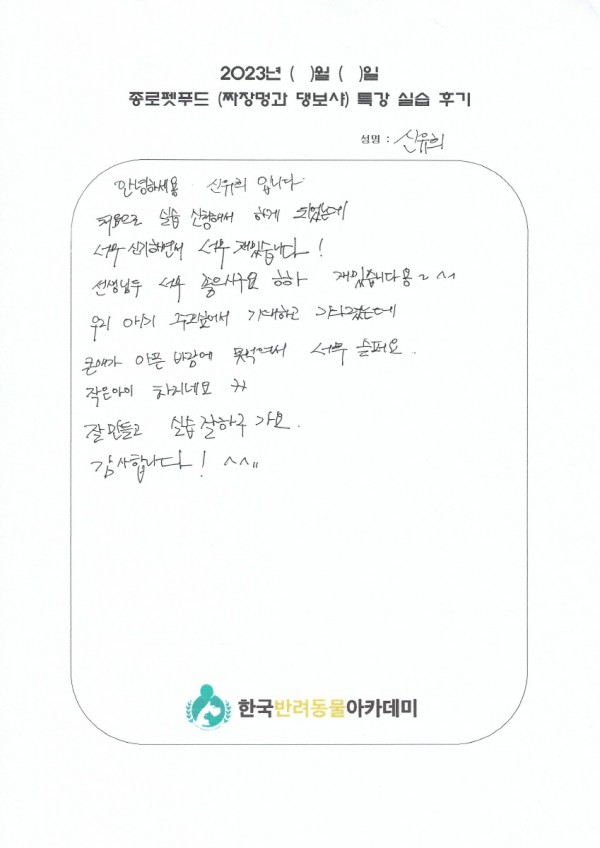 2023년 (  )월 (  )일
종로펫푸드 (짜장멍과 댕보샤) 특강 실습 후기
성명 : 신유희
안녕하세용 신유희 입니다
처음으로 실습 신청해서 하게 되었는데
너무 신기하면서 너무 재밌습니다!
선생님두 너무 좋으시구요 하하 재밌습니다용~^^
우리 아기 주고싶어서 기대하고
큰애가 아픈 바람에 못먹여서 너무 슬퍼요.
작은아이 차지네요 ㅋㅋ
잘 만들고 실습 잘하구 가요.
감사합니다! ^^"
한국반려동물아카데미